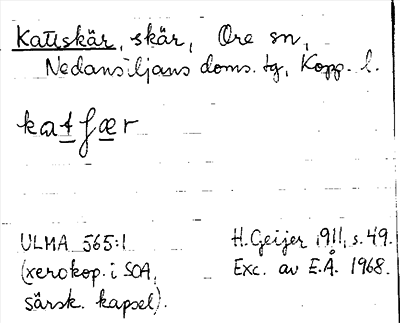 Kattskär, skär, Ore sn,
Nedansiljans doms. tg, Kopp. l.
katʃær
ULMA 565:1
(xerokop. i SOA,
särsk. kapsel).
H. Geijer 1911, s. 49.
Exc. av E.Å. 1968.